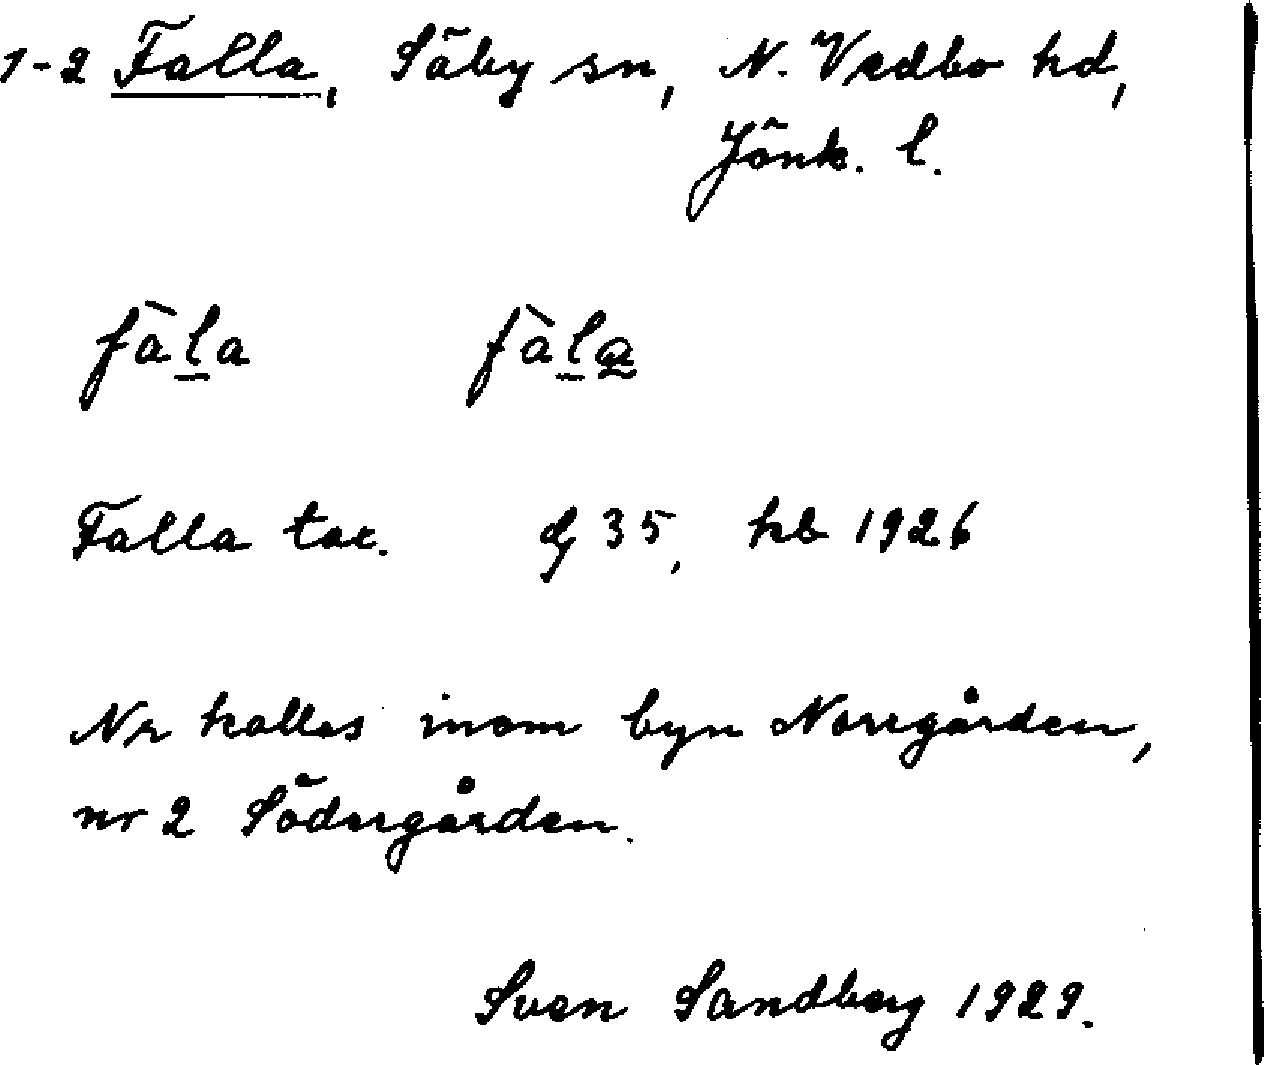 1-2 Falla, Säby sn, N. Vedbo hd,
Jönk. l.
fàla fàla
Falla tax. dj 35, kb 1926
Nr kallas inom byn Norrgården,
nr 2 Södergården.
Sven Sandberg 1929.